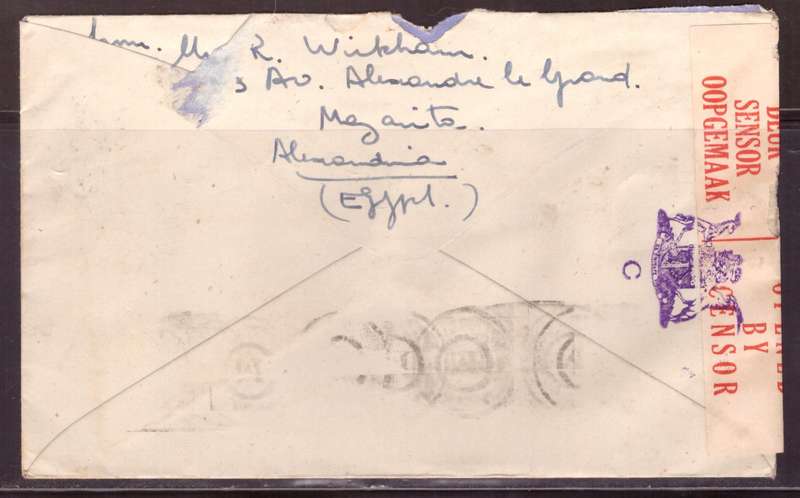 from. Mrs R. Wickham.
3 Av. Alexandre le Grand.
Mazarita.
Alexandria
(Egypt.)
DEUR
SENSOR
OOPGEMAAK
OPENED
BY
CENSOR
C